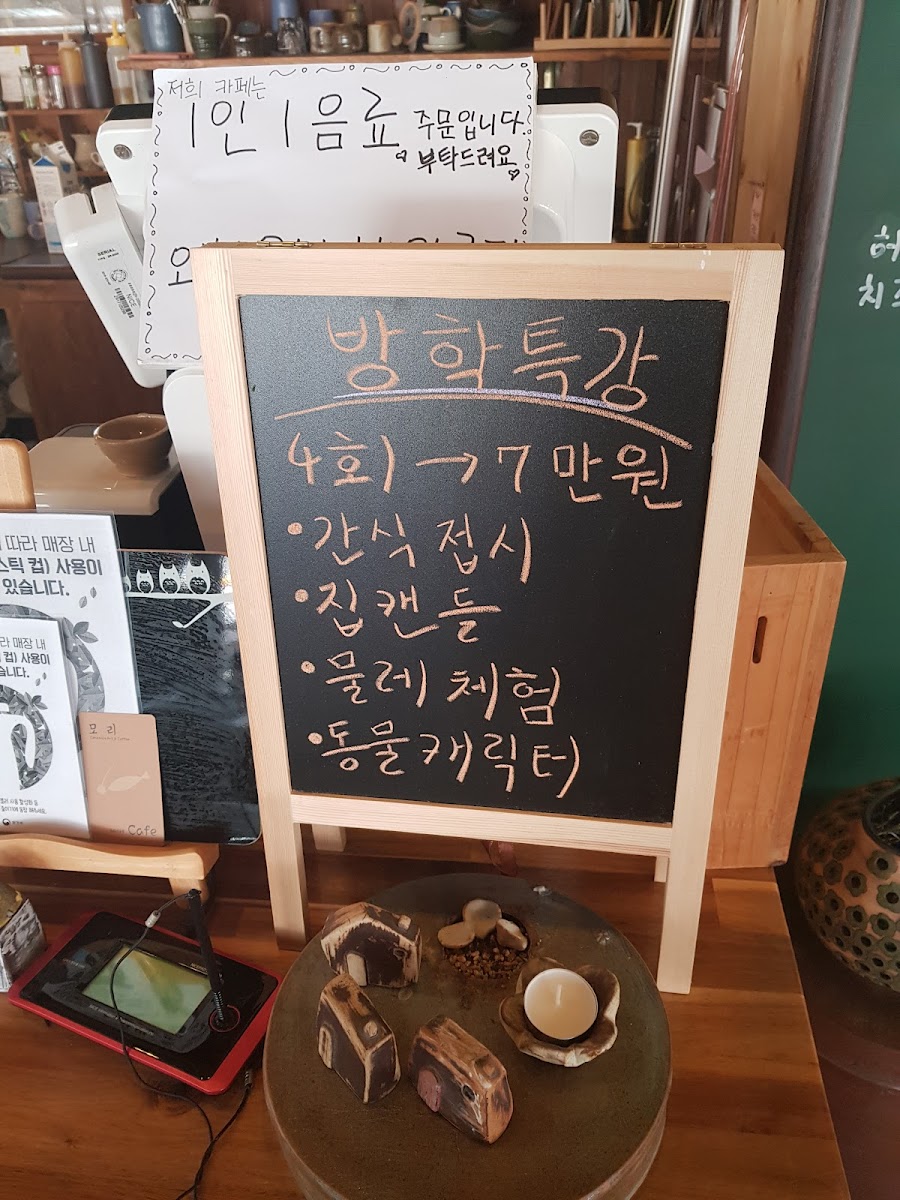 저희 카페는
1인 1음료 주문입니다.
부탁드려요
방학특강
4회 → 7만원
• 간식 접시
• 집캔들
• 물레 체험
• 동물캐릭터
따라 매장 내
스틱 컵) 사용이
있습니다.
라 매장 내
컵) 사용이
습니다.
모리
Cafe
SERIAL
NICE
허
치즈